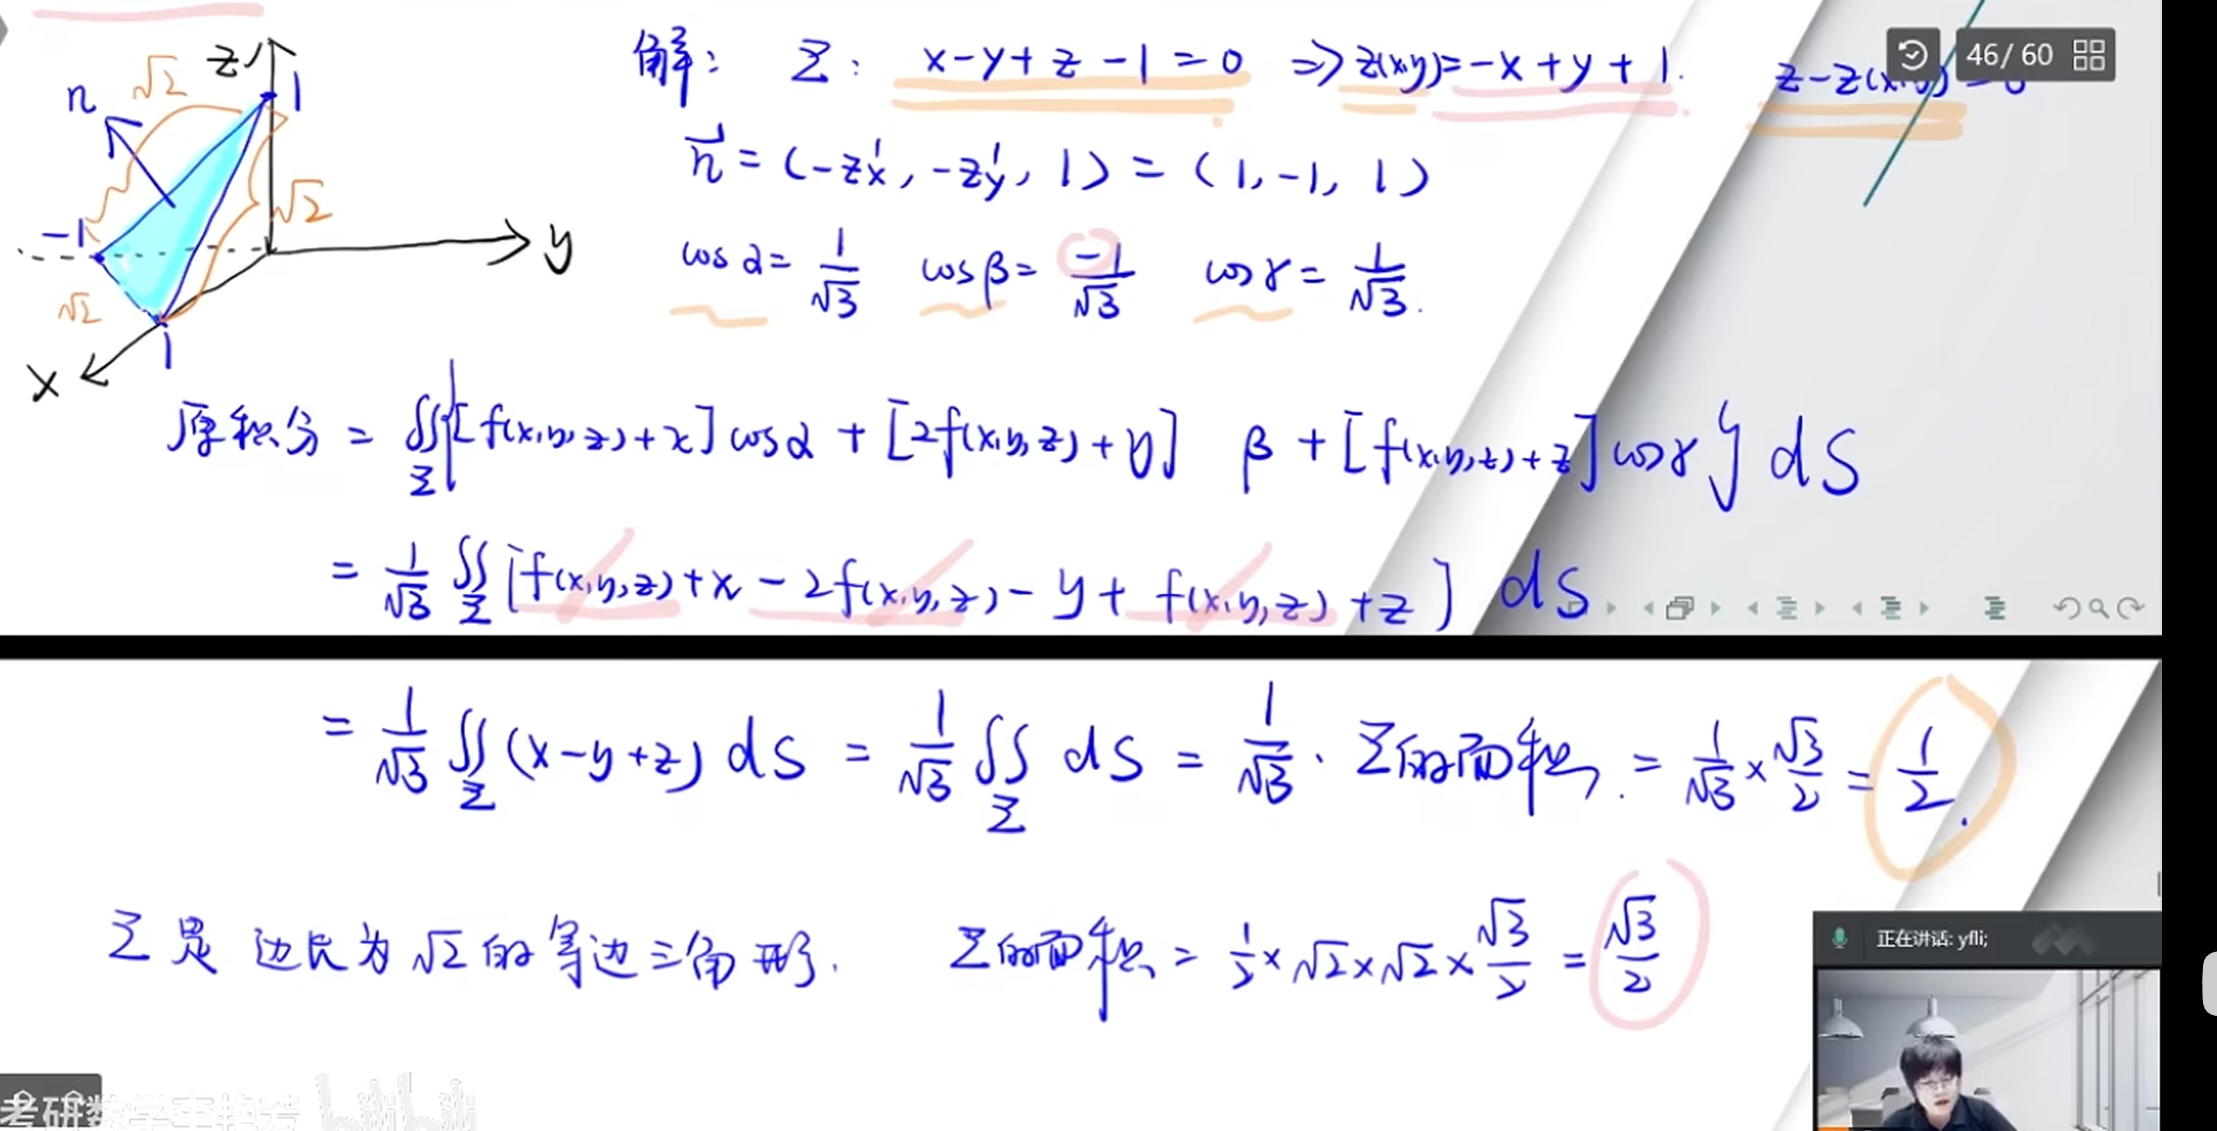 46/ 60
解: Σ: x-y+z-1=0 => z(x,y)=-x+y+1. z-z(x,y)=0
z 1
√2
n
n⃗ = (-z'x, -z'y, 1) = (1, -1, 1)
√2
-1 y
cosα = 1/√3 cosβ = -1/√3 cosγ = 1/√3.
√2
1
x
原积分 = ∬Σ {[f(x,y,z)+x]cosα + [2f(x,y,z)+y] β + [f(x,y,z)+z]cosγ} dS
= 1/√3 ∬Σ [f(x,y,z)+x - 2f(x,y,z) - y + f(x,y,z) + z] dS
= 1/√3 ∬Σ (x-y+z) dS = 1/√3 ∬Σ dS = 1/√3 · Σ的面积. = 1/√3 × √3/2 = 1/2.
Σ是 边长为 √2 的等边三角形. Σ的面积 = 1/2 × √2 × √2 × √3/2 = √3/2
正在讲话: yfli;
考研数学
bilibili